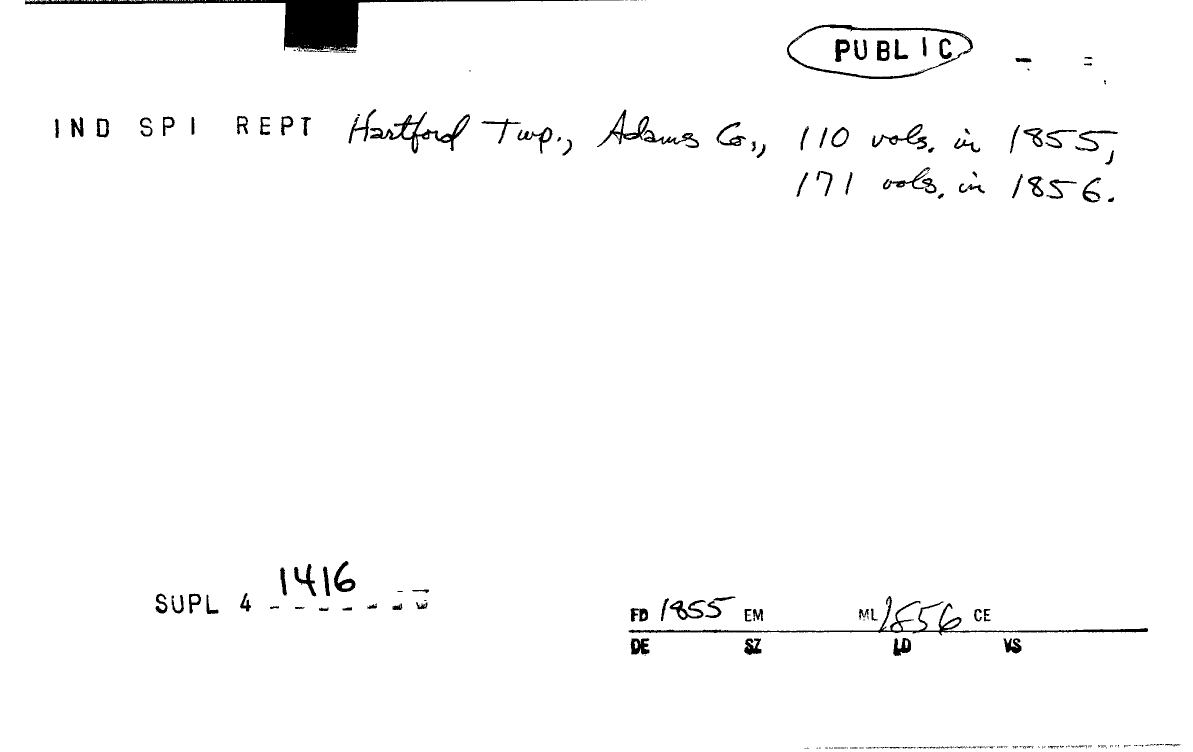 PUBLIC
IND SPI REPT Hartford Twp., Adams Co., 110 vols. in 1855,
171 vols. in 1856.
1416
SUPL 4
FD 1855 EM ML 1856 CE
DE SZ LD VS